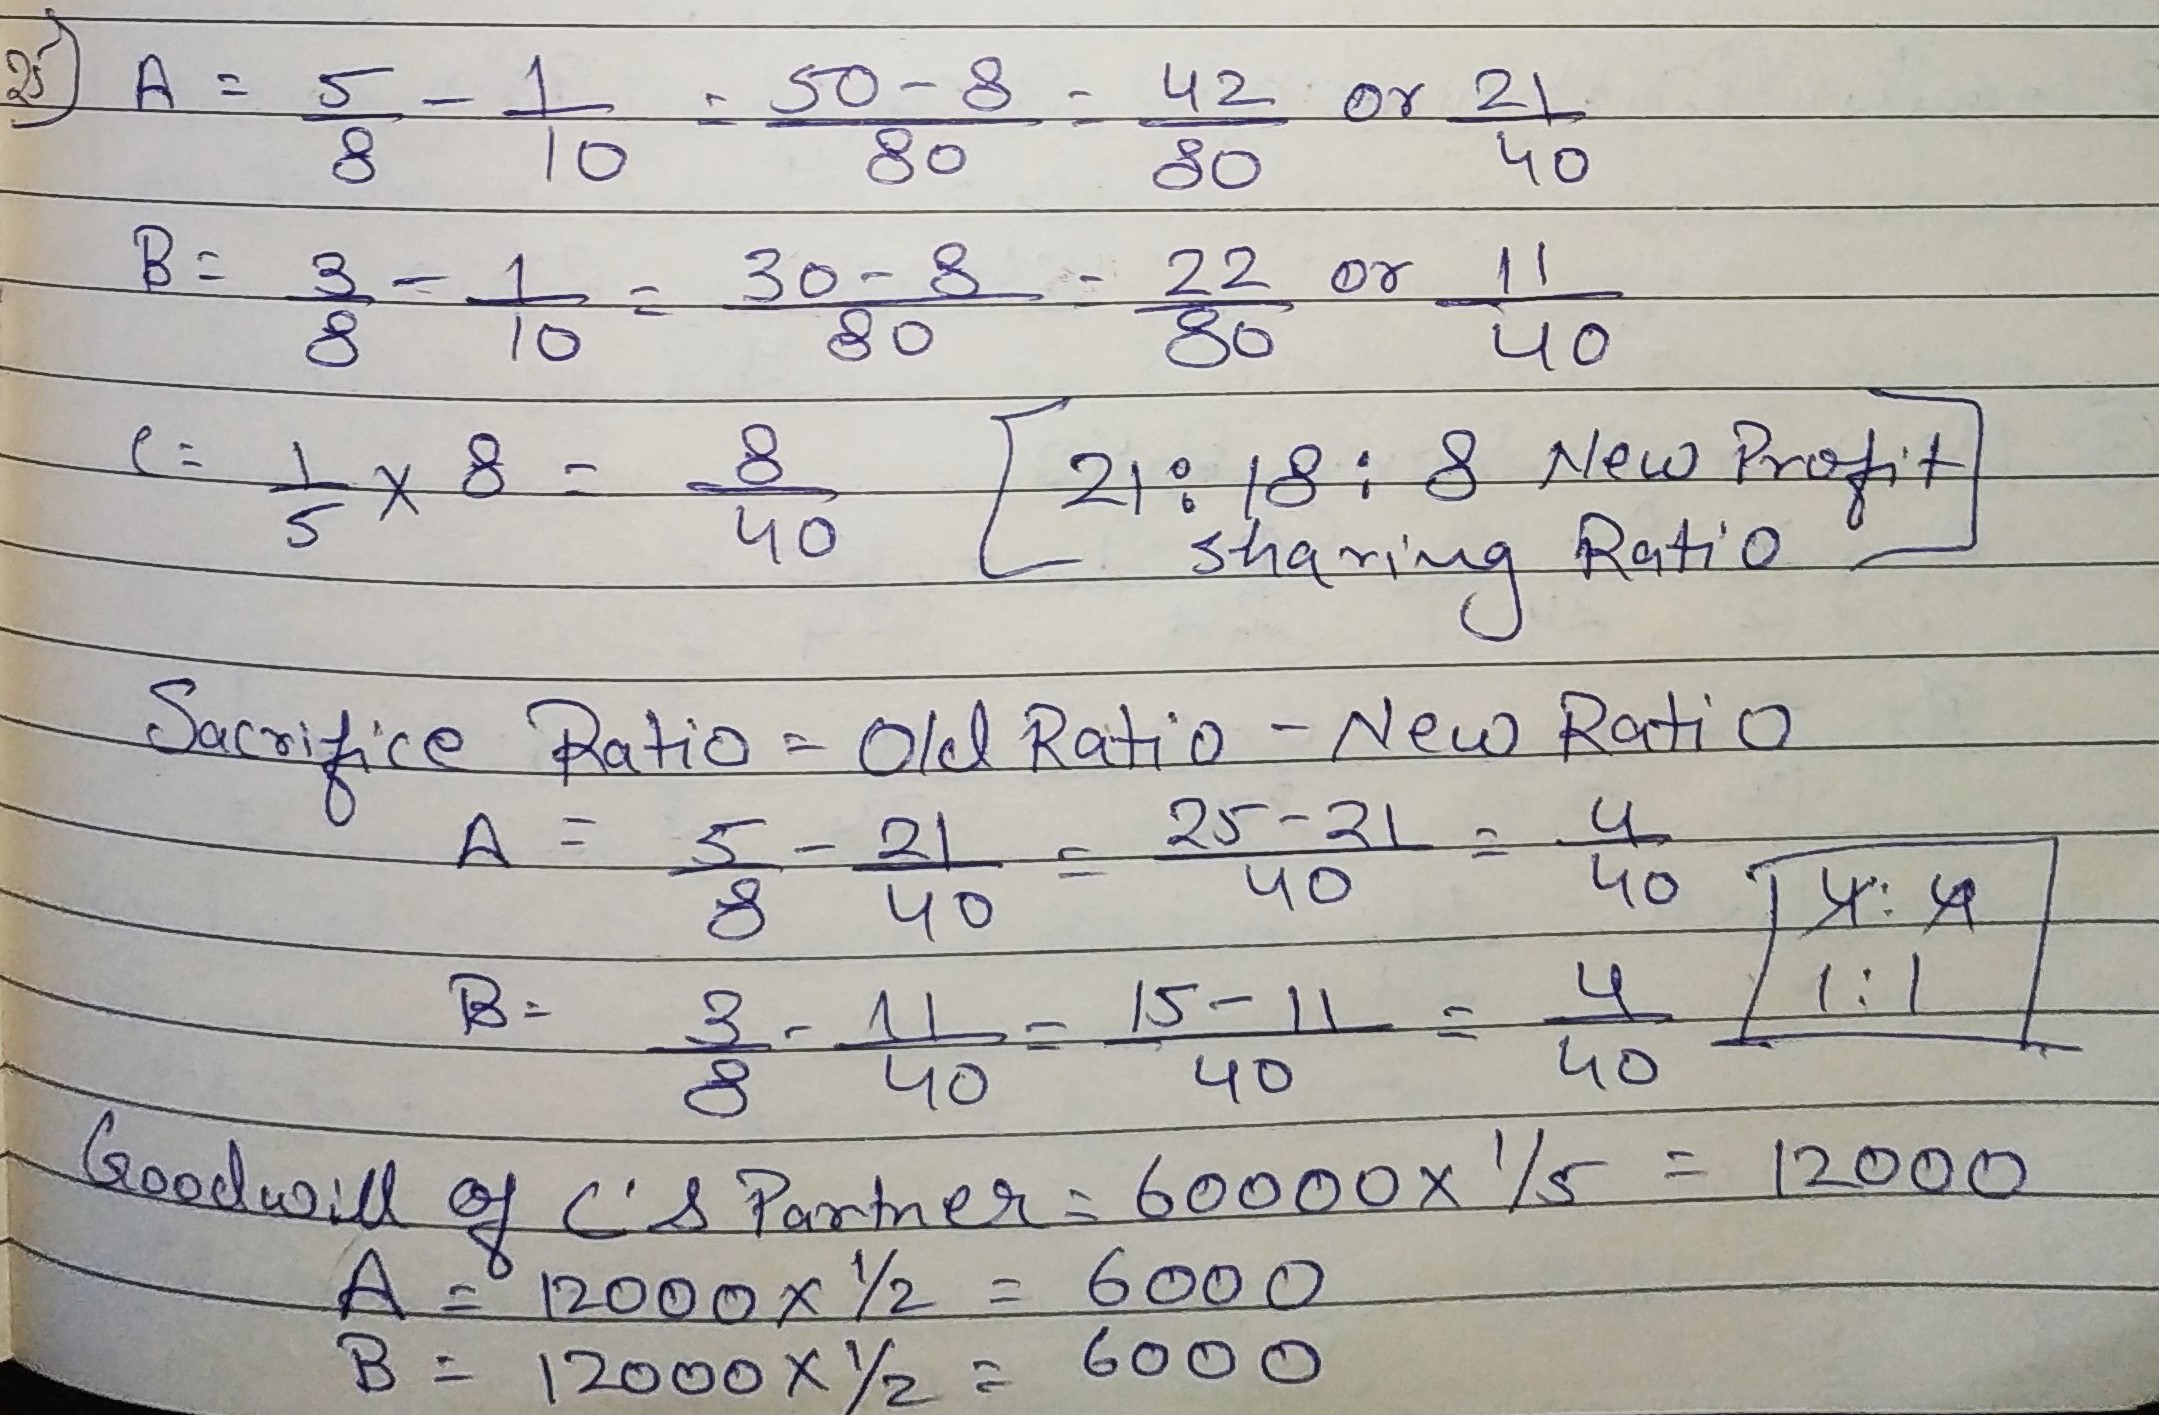 25) A = 5/8 - 1/10 = 50-8/80 = 42/80 or 21/40
B = 3/8 - 1/10 = 30-8/80 = 22/80 or 11/40
C = 1/5 x 8 = 8/40 [21 : 18 : 8 New Profit
sharing Ratio]
Sacrifice Ratio = Old Ratio - New Ratio
A = 5/8 - 21/40 = 25-21/40 = 4/40
4 : 4
B = 3/8 - 11/40 = 15-11/40 = 4/40
1 : 1
Goodwill of C's Partner = 60000 x 1/5 = 12000
A = 12000 x 1/2 = 6000
B = 12000 x 1/2 = 6000